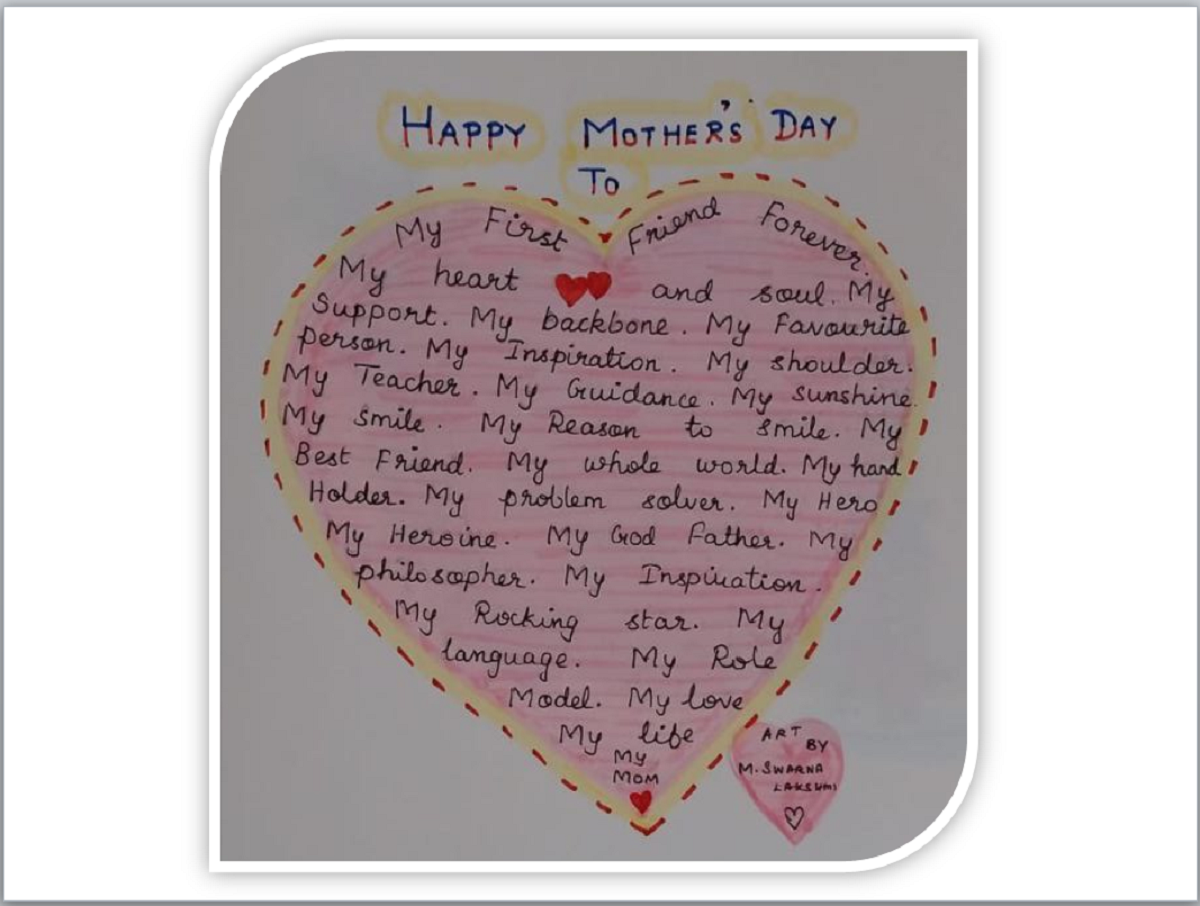 HAPPY MOTHER'S DAY
To
My First Friend Forever.
My heart and soul. My
Support. My backbone. My Favourite
person. My Inspiration. My shoulder.
My Teacher. My Guidance. My sunshine.
My smile. My Reason to smile. My
Best Friend. My whole world. My hand
Holder. My problem solver. My Hero
My Heroine. My God Father. My
philosopher. My Inspiration.
My Rocking star. My
language. My Role
Model. My love
My life
My
MOM
ART
BY
M. SWARNA
LAKSHMI